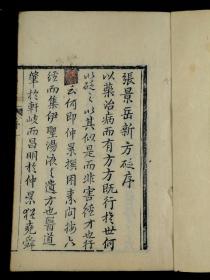 張景岳新方砭序
以藥治病而有方方既行於世何
以砭之以其似是而非害經方也行
云何即仲景撰用素問按六
經而集伊聖湯液之遺方也蓋
肇於軒岐而昌明於仲景猶堯舜